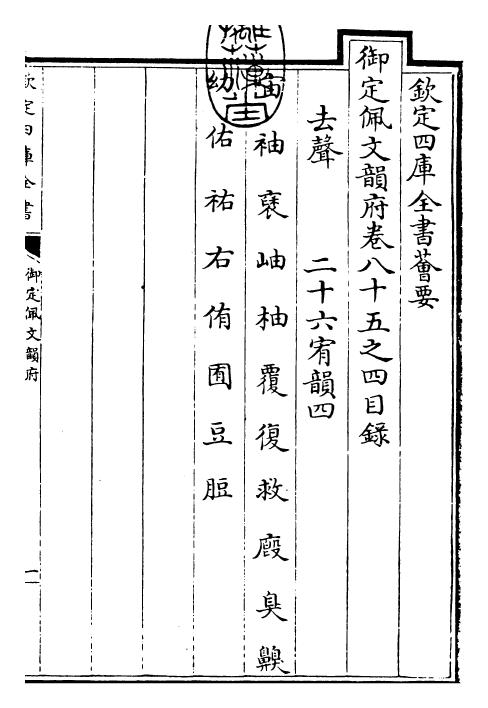 欽定四庫全書薈要
御定佩文韻府卷八十五之四目錄
去聲 二十六宥韻四
宙 袖 褎 岫 柚 覆 復 救 廄 臭 齅
幼 佑 祐 右 侑 囿 豆 脰
欽定四庫全書
御定佩文韻府
一